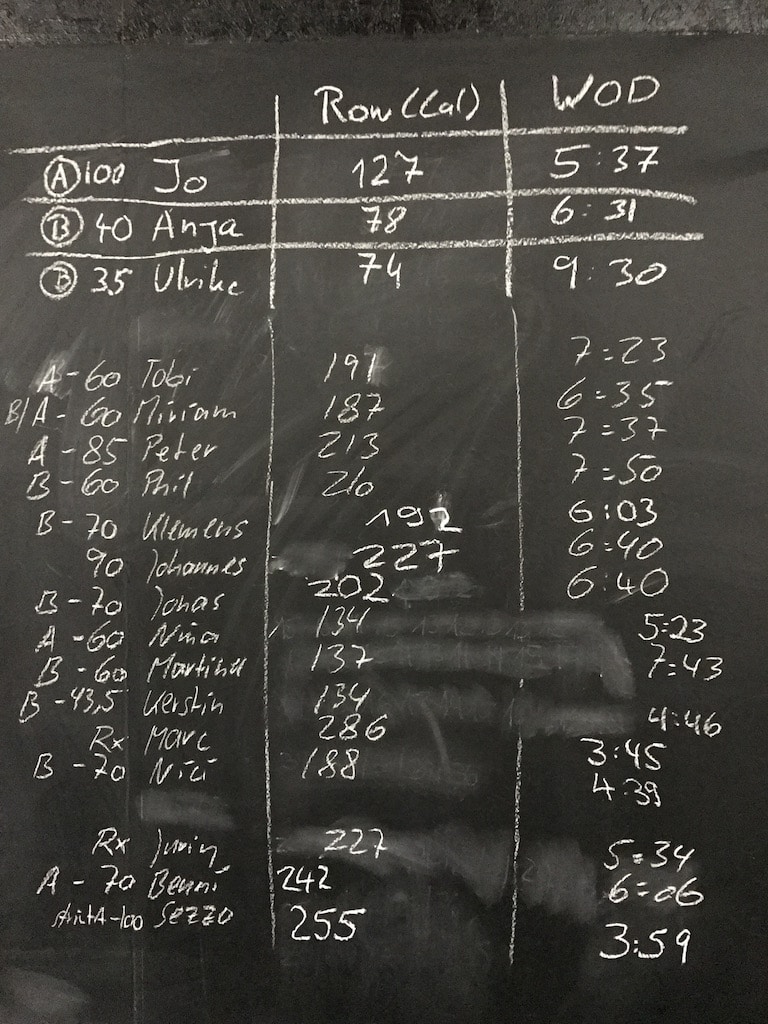 Row (Cal) WOD
Ⓐ 100 Jo 127 5:37
Ⓑ 40 Anja 78 6:31
Ⓑ 35 Ulrike 74 9:30
A - 60 Tobi 191 7:23
B/A - 60 Miriam 187 6:35
A - 85 Peter 213 7:37
B - 60 Phil 210 7:50
B - 70 Klemens 192 6:03
90 Johannes 227 6:40
B - 70 Jonas 202 6:40
A - 60 Nina 134 5:23
B - 60 Martina 137 7:43
B - 43,5 Kerstin 134 4:46
Rx Marc 286 3:45
B - 70 Nici 188 4:39
Rx 227 5:34
A - 70 Benni 242 6:06
strict A-100 Sezzo 255 3:59